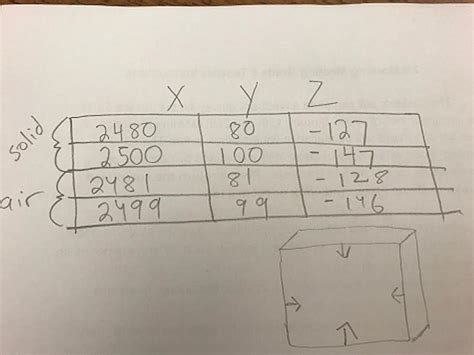 X Y Z
solid 2480 80 -127
2500 100 -147
air 2481 81 -128
2499 99 -146